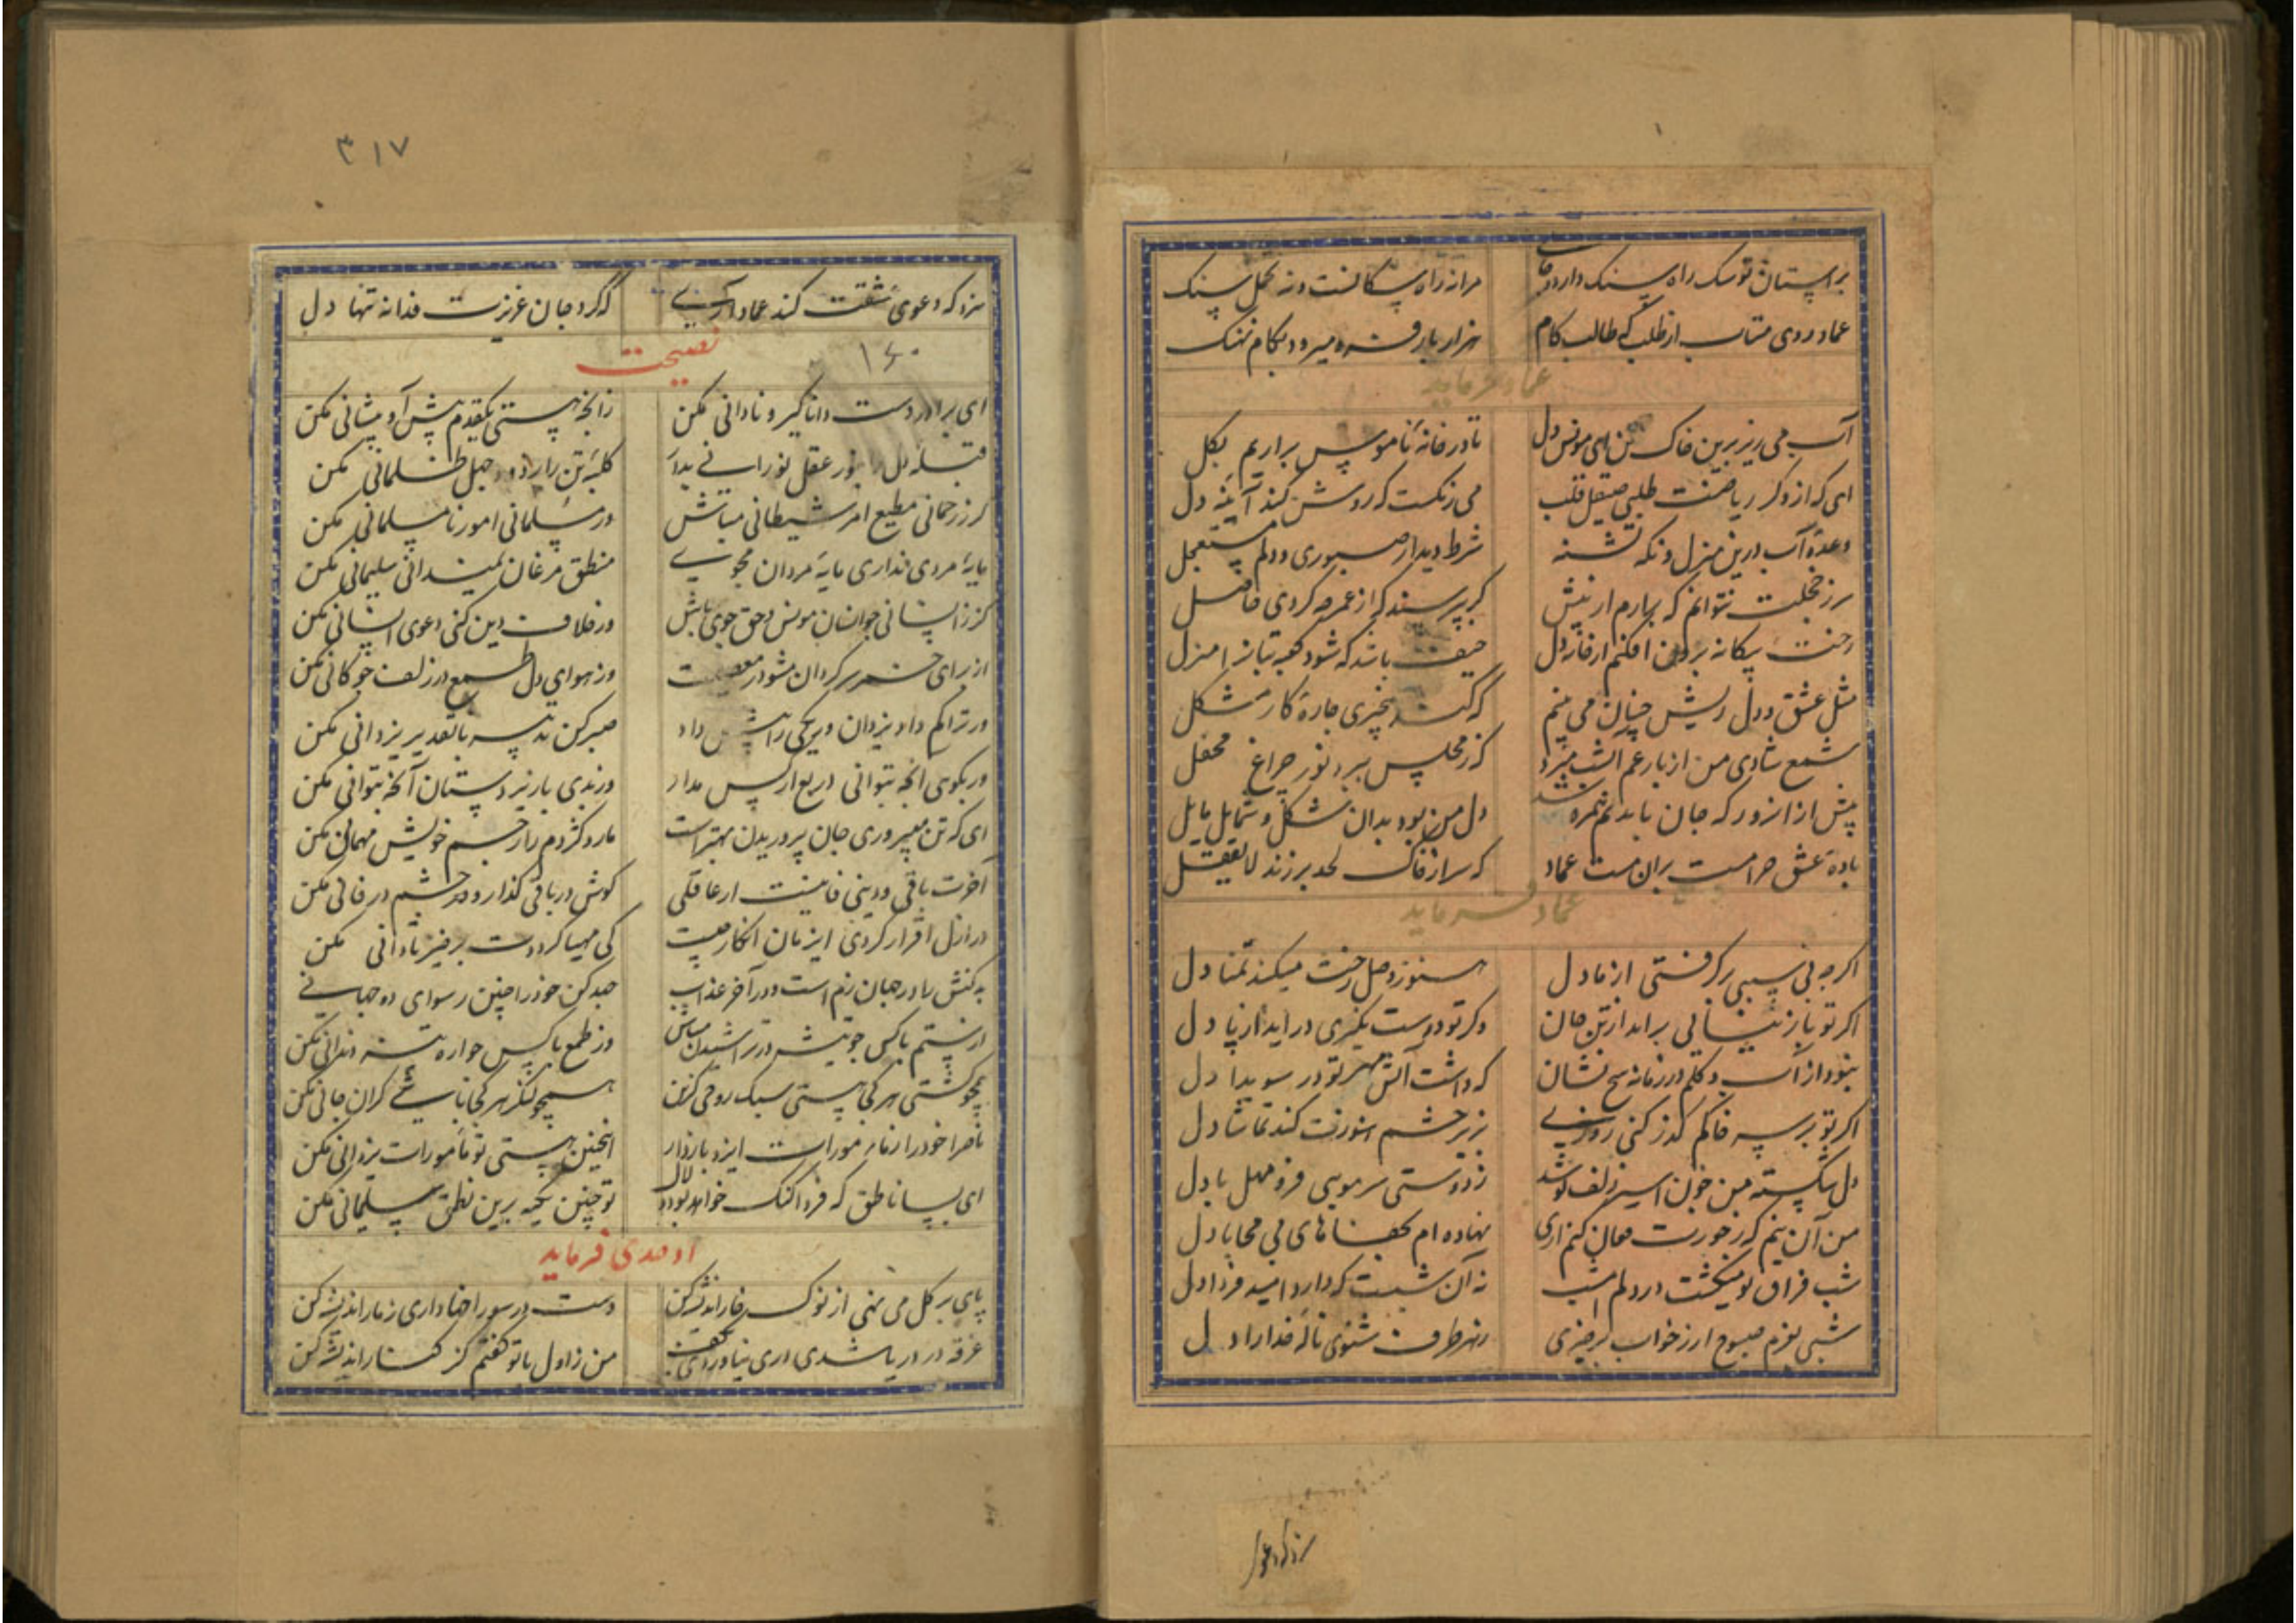 بر آستان تو سگ راه سنک دارد و من
مرا نه راه سکانست و نه تحمل سنک
عماد روی متاب از طلب که طالب کام
هزار بار فرو میرود بکام نهنک
عماد فرماید
آب می ریز برین خاک تن ای مونس دل
تا در خانهٔ ناموس براریم بکل
ای که از ذکر ریاضت طلبی صیقل قلب
می زنکست که روشن کند آیینه دل
وعدهٔ آب درین منزل و نکه تشنه
شرط دیدار صبوری و دلم مستعجل
سر ز خجلت نتوانم که برارم از پیش
کر بپرسند که از عمر چه کردی حاصل
رخت بیکانه برون افکنم از خانه دل
حیف باشد که شود کعبه بتان را منزل
مثل عشق و دل ریش چنان می بینم
که کند بیخبری چارهٔ کار مشکل
شمع شادی من از باد غم امشب بمرد
کز مجلس ببرد نور چراغ محفل
پیش از آنروز که جان با بدنم همره شد
دل من بود بدان شکل و شمایل مایل
بادهٔ عشق حرامست بران مست عماد
که سر از خاک لحد برزند لایعقل
عماد فرماید
اگر چه بی سببی بر کرفتی از ما دل
هنوز وصل رخت میکند تمنا دل
اکر تو باز نیایی براید از تن جان
وکر تو دوست نکیری دراید از پا دل
نبود از آب و کلم در زمانه هیچ نشان
که داشت آتش مهر تو در سویدا دل
اکر تو بر سر خاکم کذر کنی روزی
ز زیر خشم هنوزت کند تماشا دل
دل شکسته من چون اسیر زلف تو شد
ز دوستی سر مویی فرو مهل با دل
من آن نیم که ز جورت فغان کنم اری
نهاده ام بجفاهای بی محابا دل
شب فراق تو میکشت در دلم امشب
نه آن شبست که دارد امید فردا دل
شبی بعزم صبوح ار ز خواب برخیزی
ز هر طرف شنوی نالهٔ خدارا دل
سزد که دعوی
۳۱۷
سزد که دعوی عشقت کند عماد آری
که کرد جان عزیزت فدا نه تنها دل
۱۶۰
نصیحت
ای برادر دست دانا کیر و نادانی مکن
زانچه هستی یکقدم پیش آ و پیشانی مکن
قبله دل را بنور عقل نورانی بدار
کلبهٔ تن را ز دود جهل ظلمانی مکن
کر ز رحمانی مطیع امر شیطانی مباش
ور مسلمانی امور نامسلمانی مکن
مایهٔ مردی نداری مایهٔ مردان مجوی
منطق مرغان نمیدانی سلیمانی مکن
کر ز انسانی چو انسان مونس و حق جوی باش
ور خلاف دین کنی دعوی انسانی مکن
از برای حسن سر کردان مشو در معصیت
وز هوای دل طمع در زلف چوکانی مکن
ور ترا کم داد یزدان و دیکری را بیش داد
صبر کن تدبیر با تقدیر یزدانی مکن
ور نکویی آنچه بتوانی دریغ از کس مدار
ور بدی با زیردستان آنچه بتوانی مکن
ای که تن میپروری جان پروریدن بهترست
مار و کژدم را ز جسم خویش مهمانی مکن
آخرت باقی و دنیی فانیست ار عاقلی
کوش در باقی کذار و چشم در فانی مکن
در ازل اقرار کردی این زمان انکار چیست
کی مهیا کردت برخیز نادانی مکن
بد کنش را در جهان رنج است و در آخر عذاب
جهد کن خود را چنین رسوای دو جهانی
از ستم با کس چو تیشه در تراشیدن مباش
وز طمع با کس چو اره تند دندانی مکن
همچو کشتی هر کجا هستی سبک روحی کزین
همچو لنکر هر کجا باشی کران جانی مکن
ناصرا خود را ز نامأمورات ایزد باز دار
اینچنین هستی تو مأمورات یزدانی مکن
ای بسا ناطق که فردا کنک خواهد بود و لال
تو چنین تکیه برین نطق سلیمانی مکن
اوحدی فرماید
پای بر کل می نهی از نوک خار اندیشه کن
دست در سوراخ داری ز مار اندیشه کن
غرقه در دریا شدی اری نیاوردی بکف
من ز اول با تو کفتم کز کنار اندیشه کن